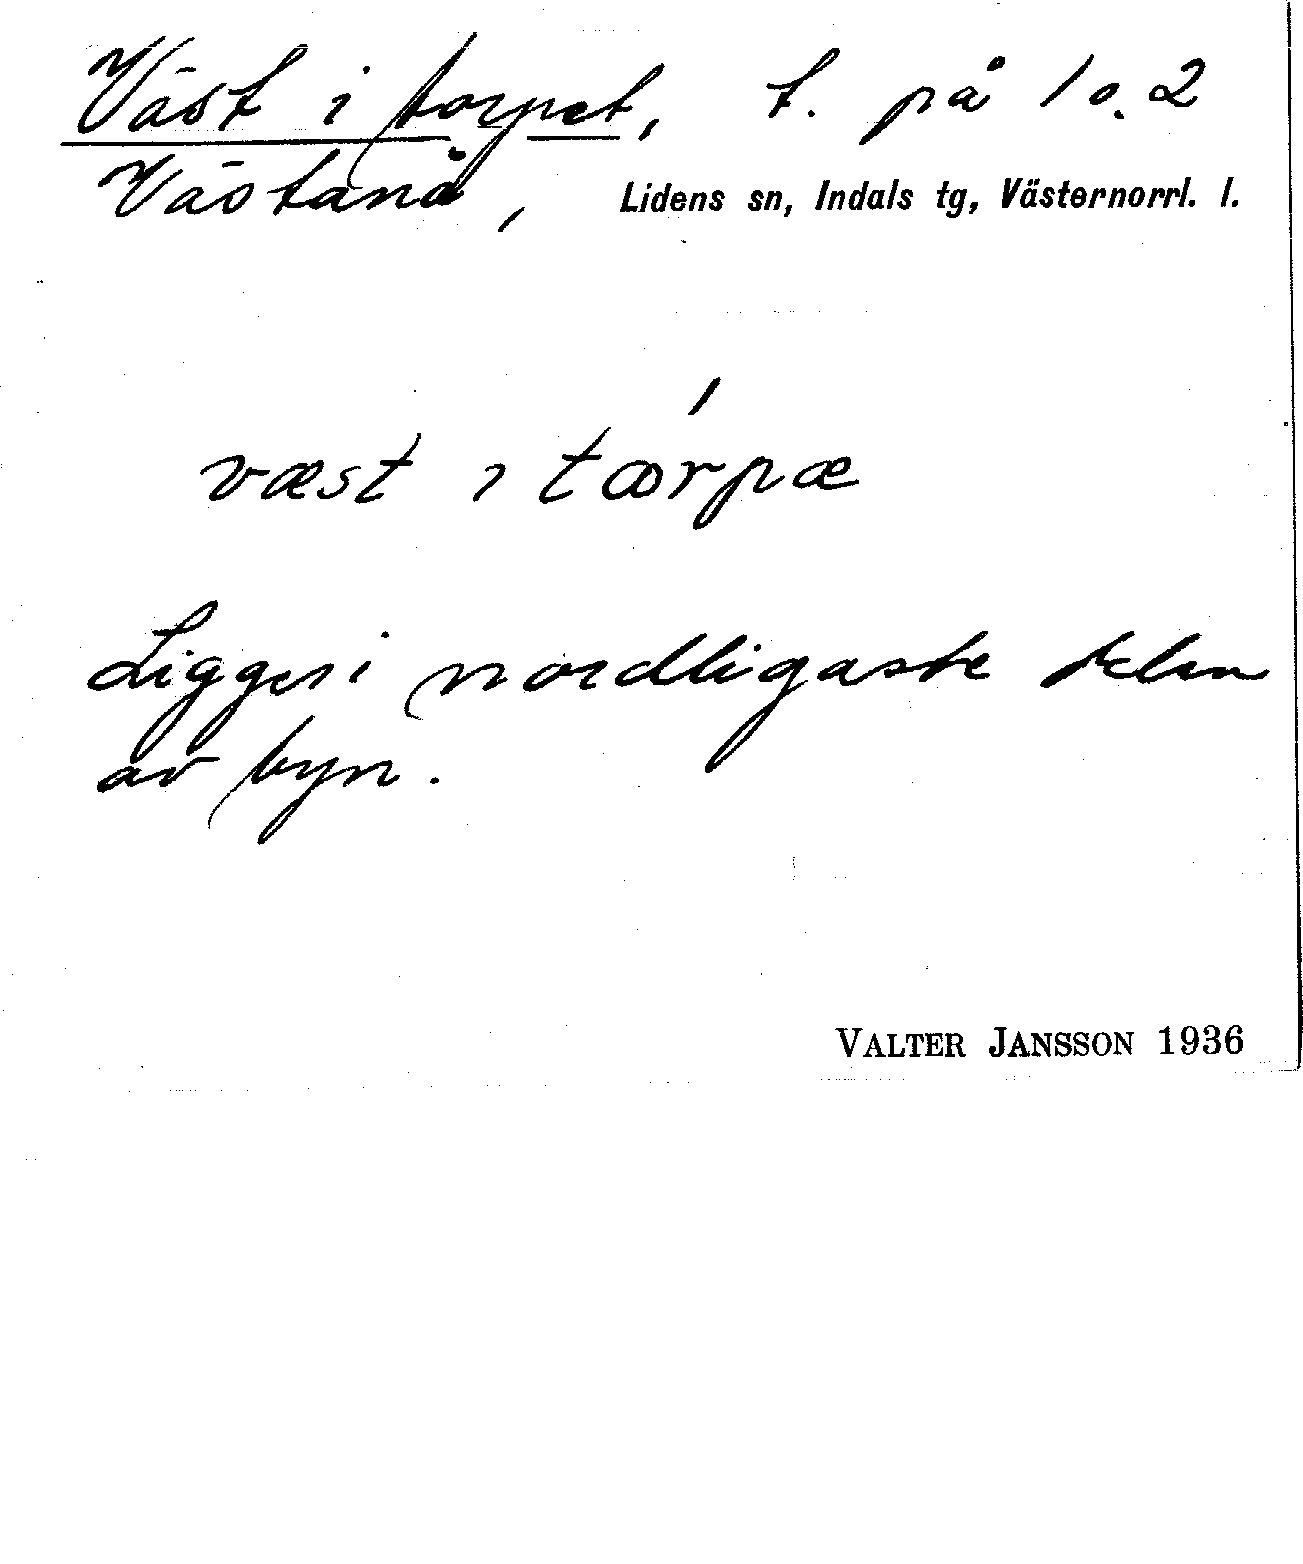 Väst i torpet, t. på 1 o. 2
Västanå, Lidens sn, Indals tg, Västernorrl. l.
væst ı tœ́rpæ
Ligger i nordligaste delen
av byn.
VALTER JANSSON 1936